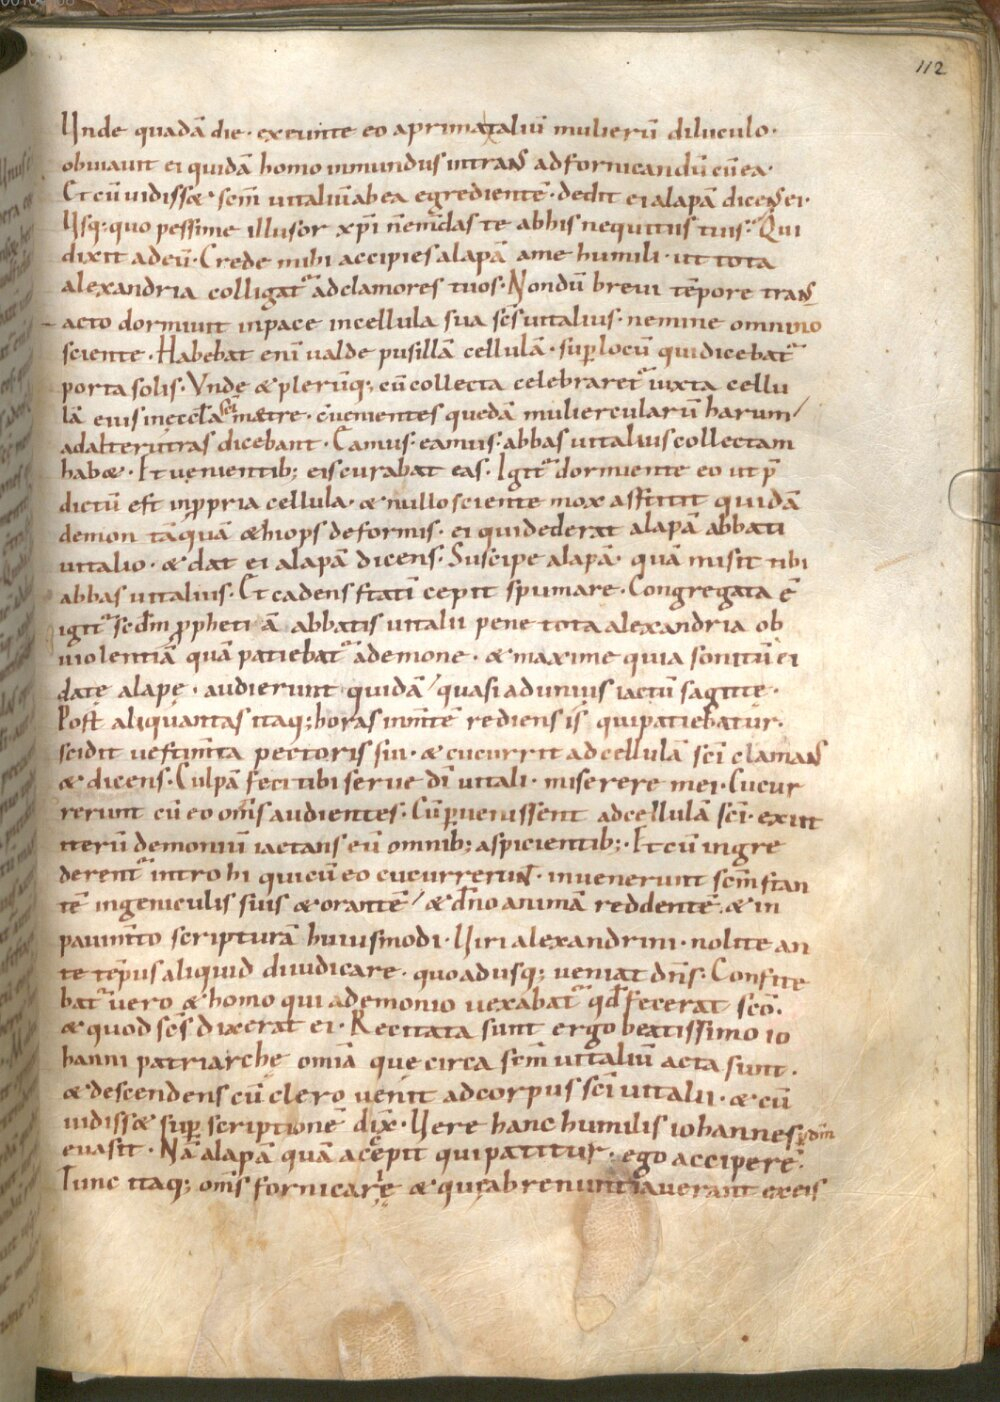 112
Unde quadā die · exeunte eo a prima taliū mulierū diluculo ·
obviavit ei quidā homo inmundus intrans ad fornicandū cū ea ·
Et cū vidisset scm̄ vitaliū ab ea egredientē · dedit ei alapā dicens ei ·
Usq; quo pessime illusor xp̄i n̄ emdas te ab his nequitiis tuis · Qui
dixit ad eū · Crede mihi accipies alapā a me humili · ut tota
alexandria colligat ad clamores tuos · Nondū brevi tēpore trans
acto dormivit in pace in cellula sua scs̄ vitalius · nemine omnino
sciente · Habebat enī valde pusillā cellulā · sup locū qui dicebat
porta solis · Unde & plerūq; cū collecta celebraret iuxta cellu
lā eius in eccla sce metre · cūvenientes quedā muliercularū harum
ad alterutras dicebant · Eamus · eamus · abbas vitalius collectam
habet · Et venientib; eis curabat eas · Igit dormiente eo ut p̄
dictū est in ppria cellula · & nullo sciente mox astitit quidā
demon tāquā ethiops deformis · ei qui dederat alapā abbati
vitalio · & dat ei alapā dicens · Suscipe alapā · quā misit tibi
abbas vitalius · Et cadens statī cepit spumare · Congregata ē
igit scdm pphetiā abbatis vitalii pene tota alexandria ob
violentiā quā patiebat a demone · & maxime quia sonitū ei
datę alapę · audierunt quidā quasi ad unius iactū sagitte ·
Post aliquantas itaq; horas in mte rediens is qui patiebatur ·
scidit vestimta pectoris sui · & cucurrit ad cellulā sci clamans
& dicens · Culpā feci tibi serve dī vitali · miserere mei · Cucur
rerunt cū eo oms audientes · Cū pvenissent ad cellulā sci · exiit
iterū demoniū iactans eū omnib; aspicientib; · Et cū ingre
derent intro hi qui cū eo cucurrerunt · invenerunt scm̄ stan
tē in geniculis suis & orantē & dn̄o animā reddentē · & in
pavimto scripturā huiusmodi · Viri alexandrini · nolite an
te tēpus aliquid diiudicare · quoadusq; veniat dn̄s · Confite
bat vero & homo qui a demonio vexabat qd fecerat sc̄o ·
& quod scs̄ dixerat ei · Recitata sunt ergo beatissimo io
hanni patriarchę omīa quę circa scm̄ vitaliū acta sunt ·
& descendens cū clero venit ad corpus sci vitalii · & cū
vidisset sup scriptionē dix̄ · Vere hanc humilis iohannes p dm̄
evasit · Nā alapā quā accepit qui patitur · ego acciperē ·
Tunc itaq; oms fornicarię & quę abrenuntiaverant ex eis